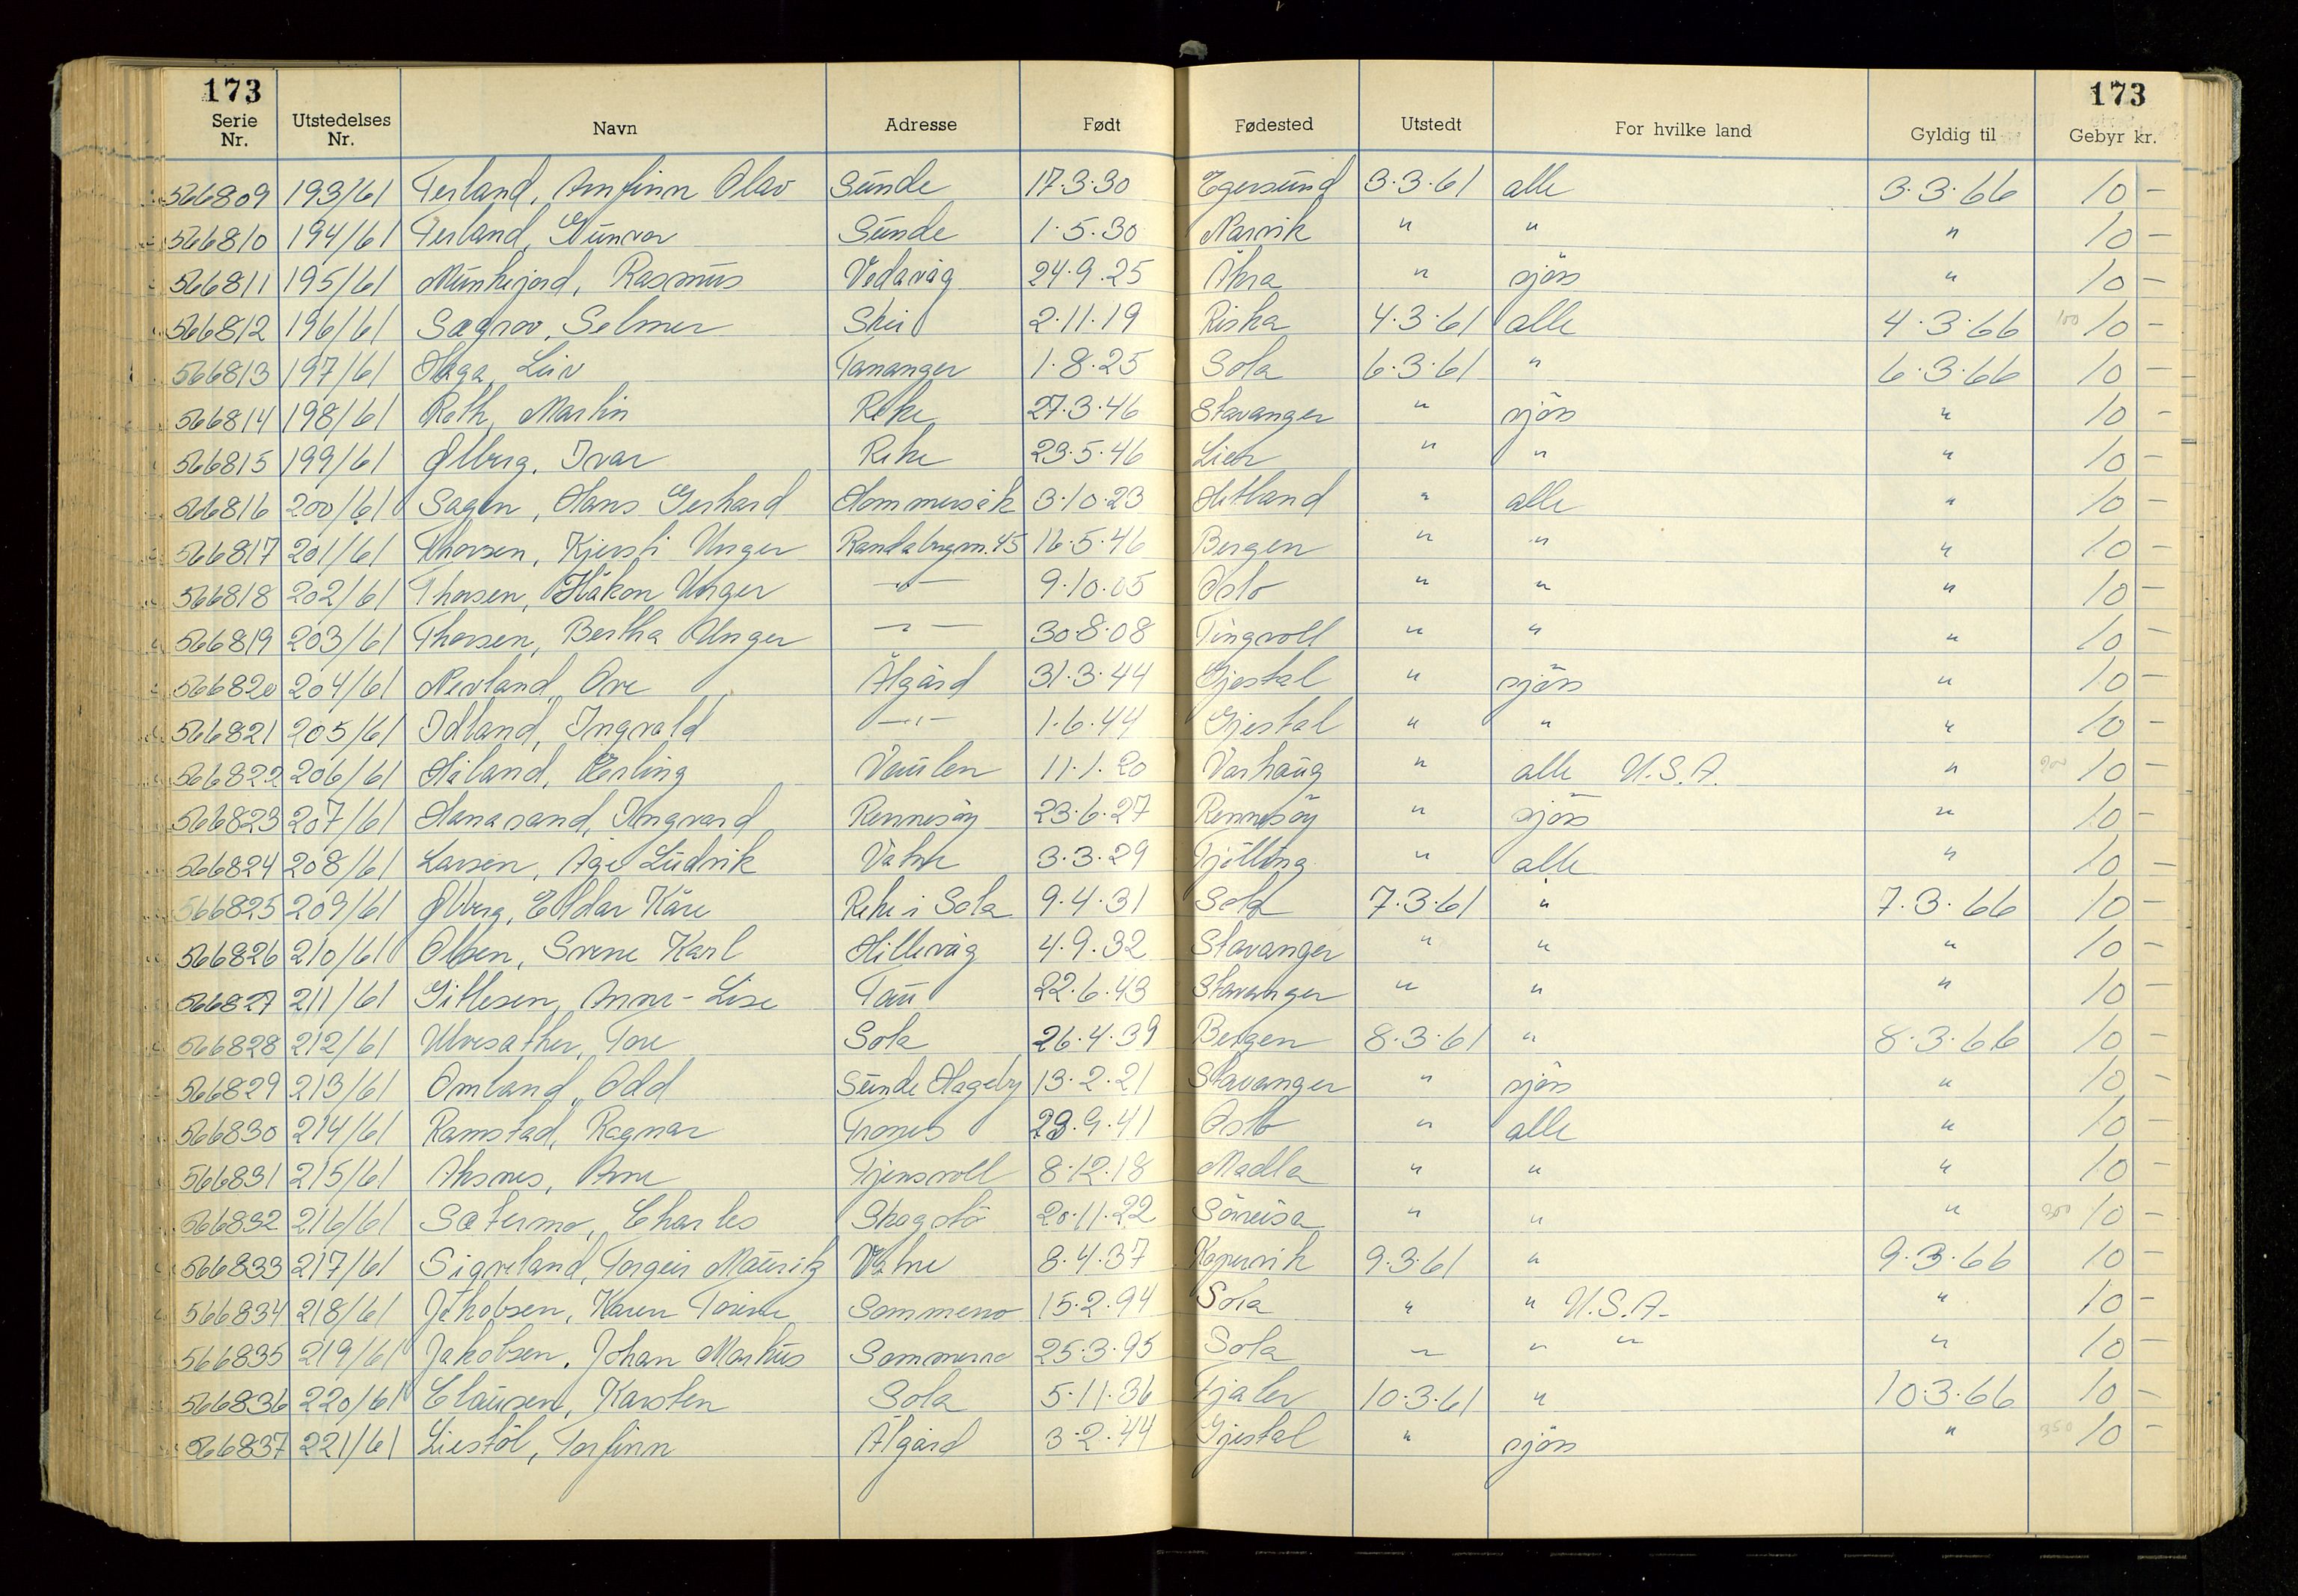 173 173
Serie Nr. Utstedelses Nr. Navn Adresse Født Fødested Utstedt For hvilke land Gyldig til Gebyr kr.
566809 193/61 Terland, Arnfinn Olav Sunde 17.3.30 Egersund 3.3.61 alle 3.3.66 10 –
566810 194/61 Terland, Gunvor Sunde 1.5.30 Narvik " " " 10 –
566811 195/61 Munkejord, Rasmus Vedavåg 24.9.25 Åkra " sjøs " 10 –
566812 196/61 Sægrov, Selmer Skei 2.11.19 Riska 4.3.61 alle 4.3.66 100 10 –
566813 197/61 Haga, Leiv Tananger 1.8.25 Sola 6.3.61 " 6.3.66 10 –
566814 198/61 Roth, Martin Reke 27.3.46 Stavanger " sjøs " 10 –
566815 199/61 Ølberg, Ivar Reke 23.5.46 Lier " " " 10 –
566816 200/61 Sagen, Hans Gerhard Hommersåk 3.10.23 Hetland " alle " 10 –
566817 201/61 Thorsen, Kjersti Unger Randabergvn. 45 16.5.46 Bergen " " " 10 –
566818 202/61 Thorsen, Håkon Unger –"– 9.10.05 Oslo " " " 10 –
566819 203/61 Thorsen, Bertha Unger –"– 30.8.08 Tingvoll " " " 10 –
566820 204/61 Nevland, Ove Ålgård 31.3.44 Gjestal " sjøs " 10 –
566821 205/61 Idland, Ingvald –"– 1.6.44 Gjestal " " " 10 –
566822 206/61 Håland, Erling Vaulen 11.1.20 Varhaug " alle U.S.A. " 200 10 –
566823 207/61 Hanasand, Ingvard Rennesöy 23.6.27 Rennesöy " sjös " 10 –
566824 208/61 Larsen, Åge Ludvik Vatne 3.3.29 Tjölling " alle " 10 –
566825 209/61 Ølberg, Eldar Kåre Reke i Sola 9.4.31 Sola 7.3.61 " 7.3.66 10 –
566826 210/61 Olsen, Svene Karl Hillevåg 4.9.32 Stavanger " " " 10 –
566827 211/61 Gitlesen, Anne-Lise Tau 22.6.43 Stavanger " " " 10 –
566828 212/61 Ulvesæther, Tore Sola 26.4.39 Bergen 8.3.61 " 8.3.66 10 –
566829 213/61 Omland, Odd Sunde Hageby 13.2.21 Stavanger " sjøs " 10 –
566830 214/61 Ramstad, Ragnar Trones 29.9.41 Oslo " alle " 10 –
566831 215/61 Aksnes, Arne Tjensvoll 8.12.18 Madla " " " 10 –
566832 216/61 Sætermo, Charles Skogstö 20.11.22 Sörreisa " " " 300 10 –
566833 217/61 Sigveland, Torgeir Mauritz Vatne 8.4.37 Kopervik 9.3.61 " 9.3.66 10 –
566834 218/61 Jakobsen, Karen Sommerro 15.2.94 Sola " " U.S.A. " 10 –
566835 219/61 Jakobsen, Johan Markus Sommerro 25.3.95 Sola " " " " 10 –
566836 220/61 Clausen, Karsten Sola 5.11.36 Fjaler 10.3.61 " 10.3.66 10 –
566837 221/61 Liestöl, Torfinn Ålgård 3.2.44 Gjestal " sjøs " 350 10 –